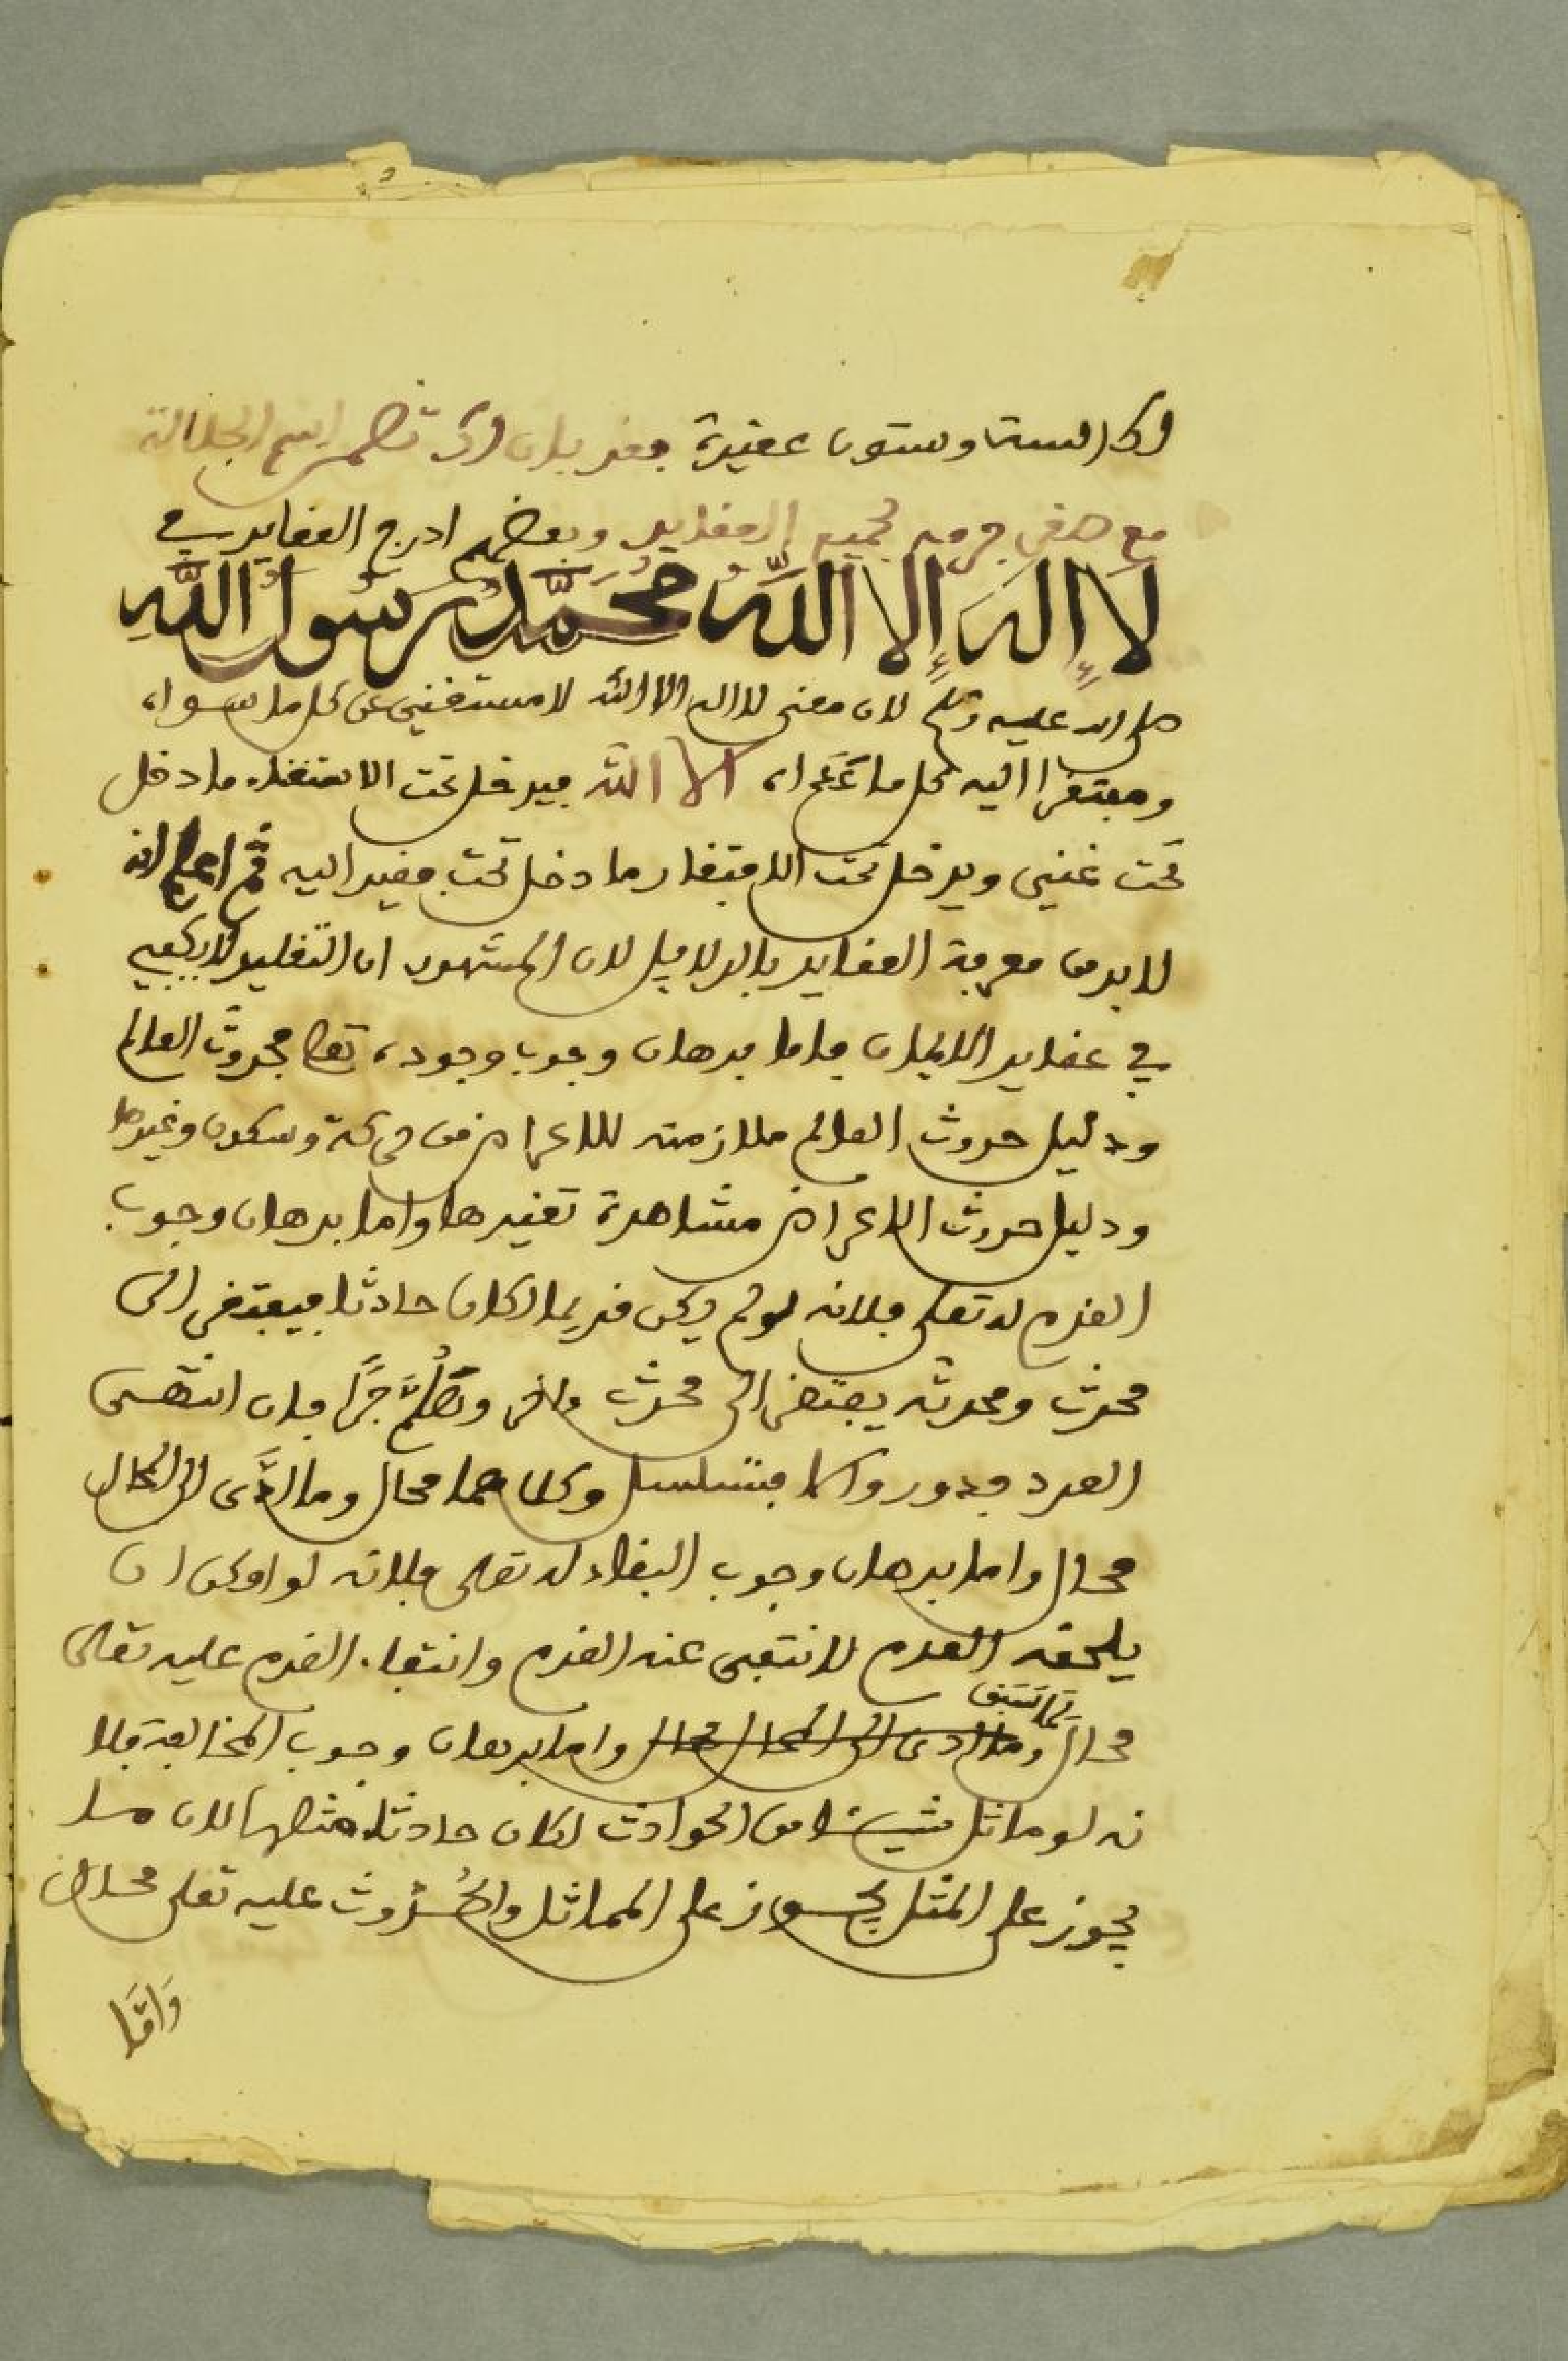 الستة وستون عقيدة فقد بان لك تضمن اسم الجلالة
مع صغر جرمه لجميع العقايد وبعضهم ادرج العقايد في
لَا إِلَهَ إِلا اللَّهُ مُحَمَّدٌ رَسُولُ اللَّهِ
صلى الله عليه وسلم لان معنى لا اله الا الله لا مستغني عن كل ما سواه
ومفتقرا اليه كل ما عداه الا الله فيدخل تحت الاستغناء ما دخل
تحت غنيي ويدخل تحت الافتقار ما دخل تحت مفيد اليه ثم اعلم انه
لا بد من معرفة العقايد بالدلايل لان المشهور ان التقليد لا يكفي
في عقايد الايمان فاما برهان وجوب وجوده تعالى فحدوث العالم
ودليل حدوث العالم ملازمته للاعراض من حركة وسكون وغيرها
ودليل حدوث الاعراض مشاهدة تغيرها واما برهان وجوب
القدم له تعلى فلانه لو لم يكن قديما لكان حادثا فيفتقر الى
محدث ومحدثه يفتقر الى محدث واخر وهَلُمَّ جَرًّا فان انتهى
العدد فدور والا فتسلسل وكلاهما محال وما ادَّى الى المحال
محال واما برهان وجوب البقاء له تعلى فلانه لو امكن ان
يلحقه العدم لانتفى عنه القدم وانتفاء القدم عليه تعلى
كَمَا سَبَق
محال وما ادى الى المحال محال واما برهان وجوب المخالفة فلا
نه لو ماثل شيئا من الحوادث لكان حادثا مثلها لان ما
يجوز على المثل يجوز على المماثل والحُدُوث عليه تعلى محال
وَامَّا